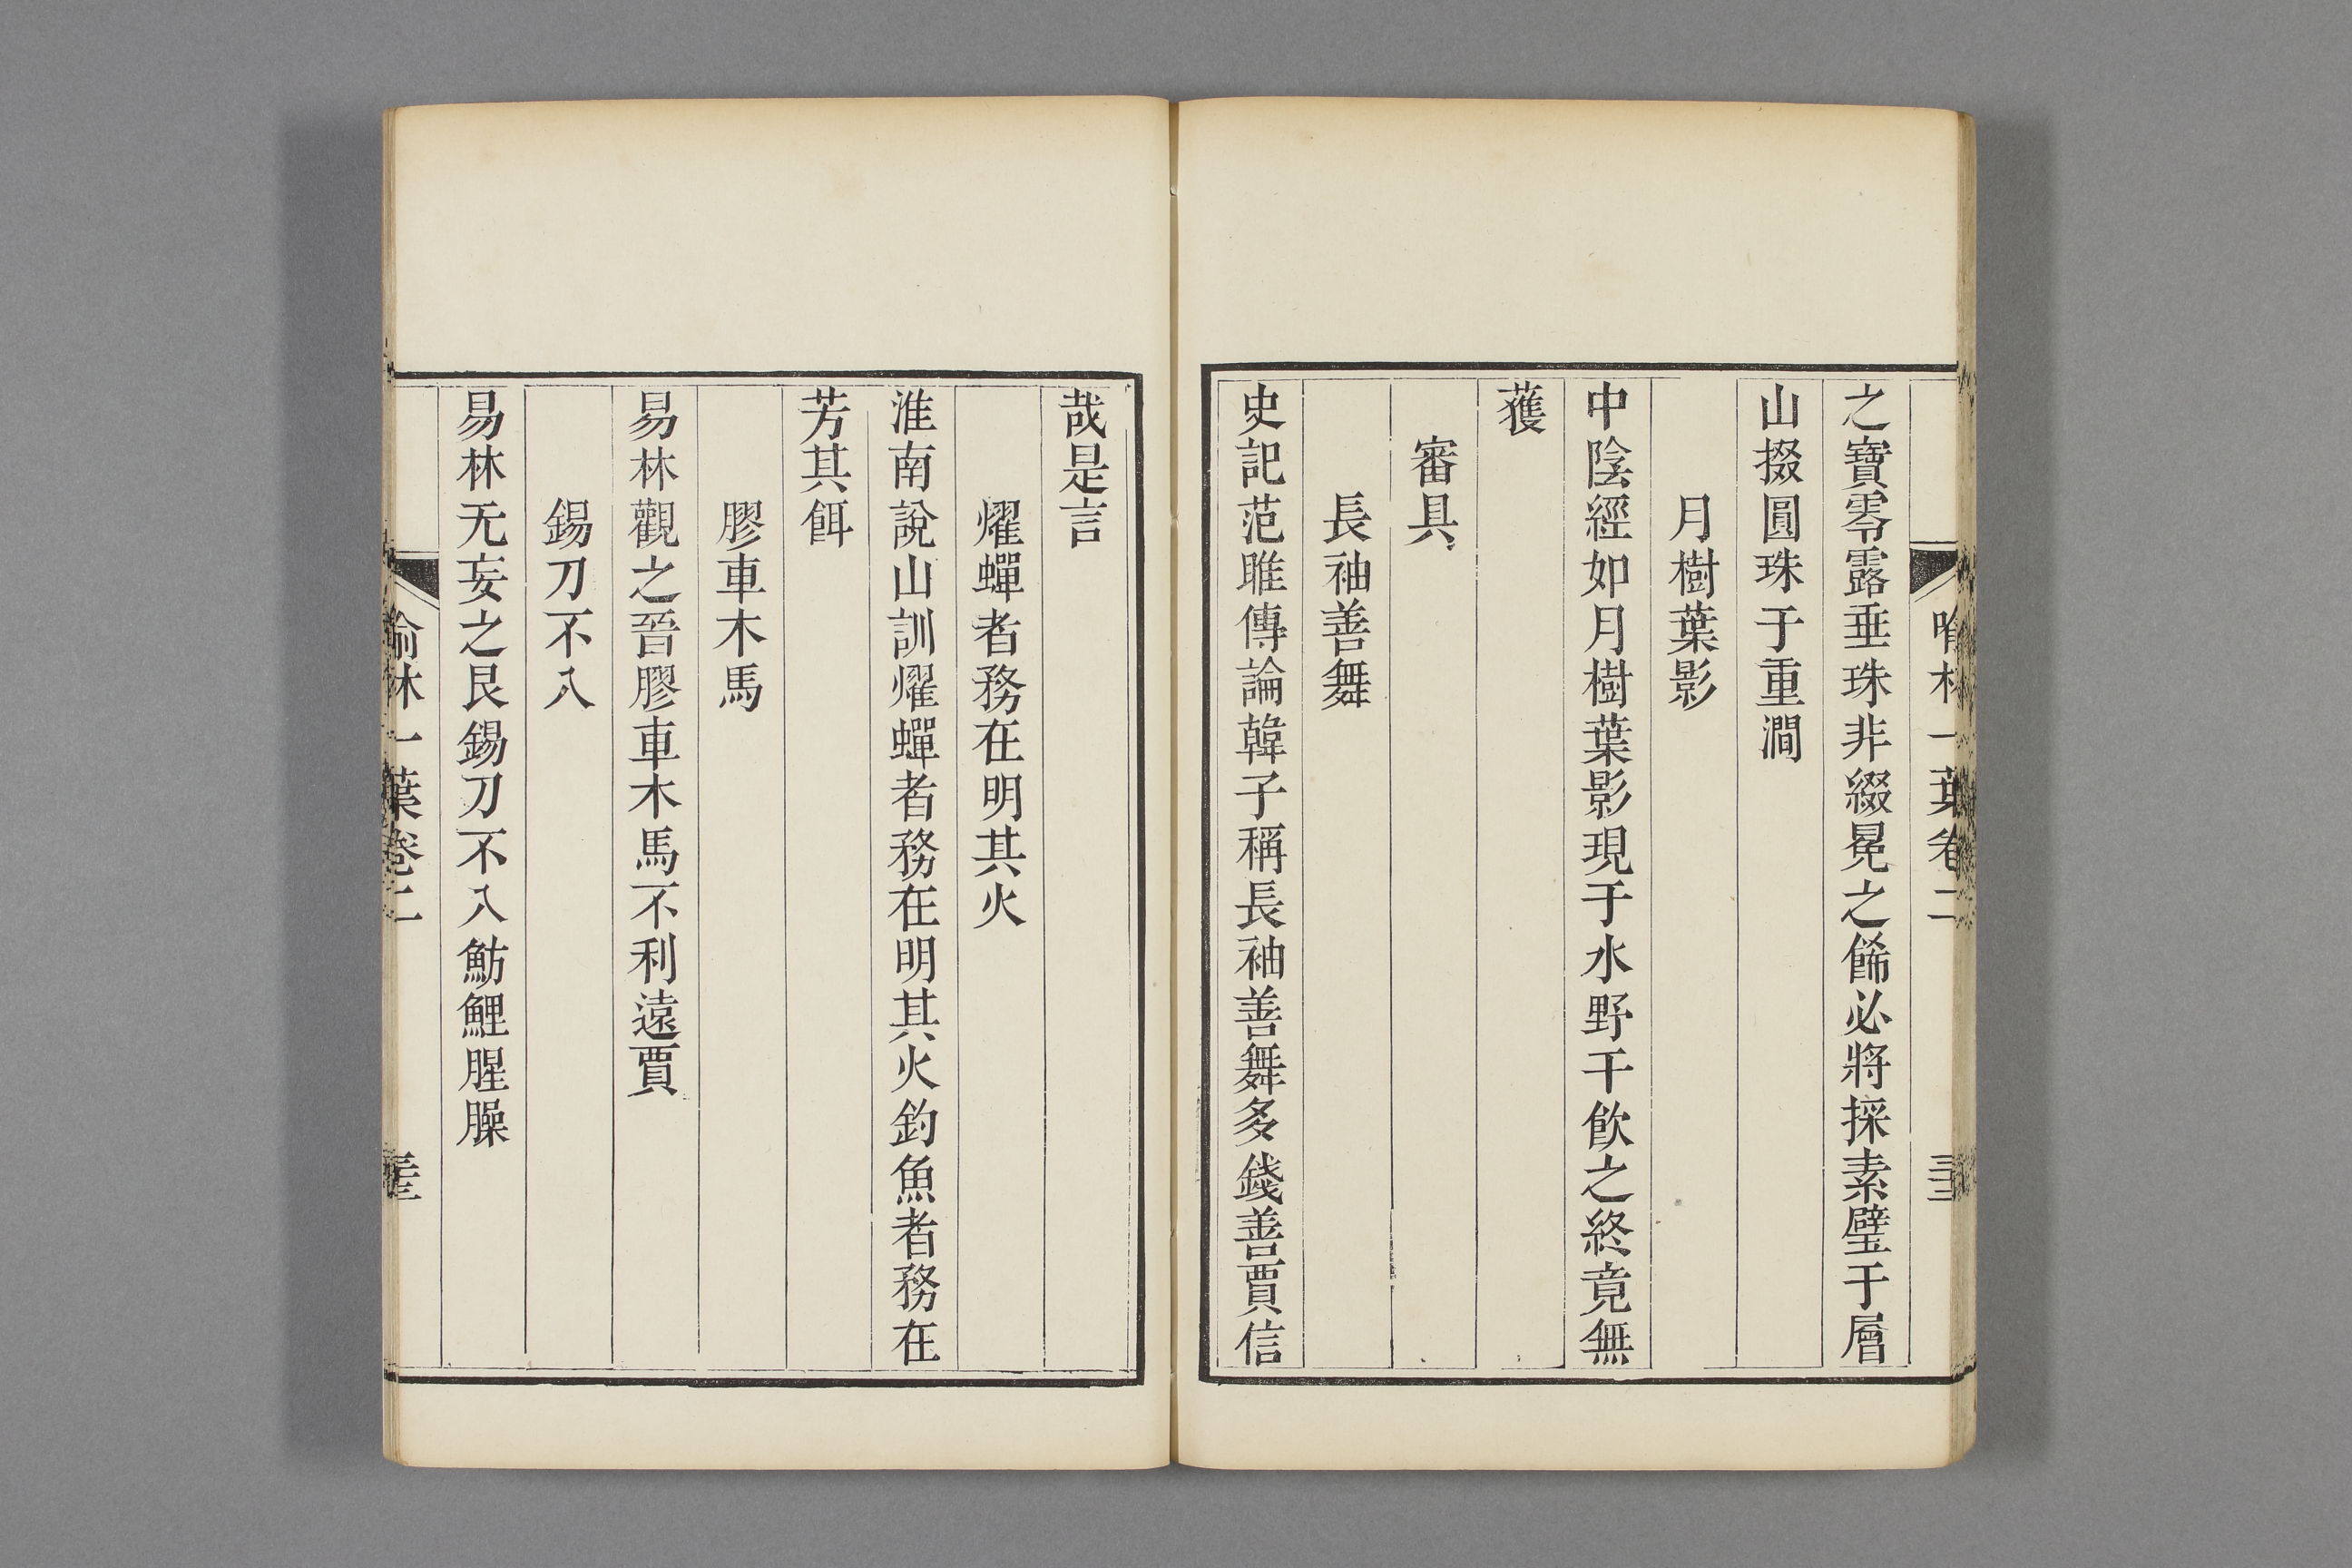 喻林一葉卷二
之寶零露垂珠非綴冕之餙必將採素璧于層
山掇圓珠于重澗
月樹葉影
中陰經如月樹葉影現于水野干飲之終竟無
獲
審具
長袖善舞
史記范雎傳論韓子稱長袖善舞多錢善賈信
哉是言
燿蟬者務在明其火
淮南說山訓燿蟬者務在明其火釣魚者務在
芳其餌
膠車木馬
易林觀之晉膠車木馬不利遠賈
錫刀不入
易林无妄之艮錫刀不入魴鯉腥臊
喻林一葉卷二